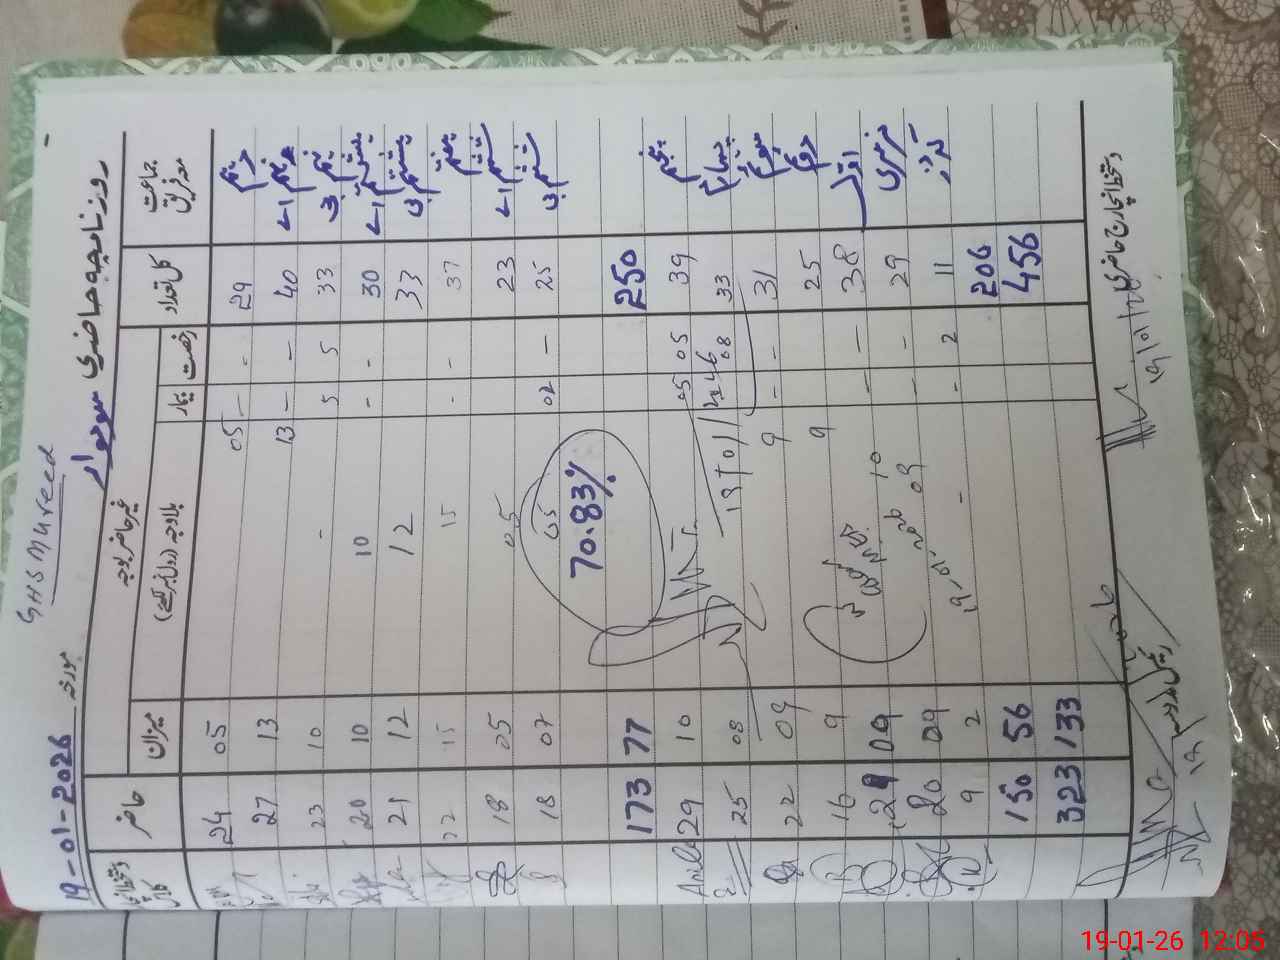 GHS Mureed
19-01-2026 مورخہ روزنامچہ حاضری سوموار
جماعت معہ فریق کل تعداد غیر حاضر بوجہ حاضر دستخط انچارج کلاس
رخصت بیمار بلاوجہ (رول نمبر لکھیے) میزان
دہم 29 - - 05 05 24
نہم اے 40 - - 13 13 27
نہم بی 33 5 5 - 10 23
ہشتم اے 30 - - 10 10 20
ہشتم بی 33 12 12 21
ہفتم 37 - - 15 15 22
ششم اے 23 05 05 18
ششم بی 25 - 02 05 07 18
70.83%
250 77 173
پنجم 39 05 05 10 29
چہارم 33 08 08 25
سوم 31 - - 9 09 22
دوم 25 9 9 16
38 - -
29 - - 09 09 20
11 2 - - 2 9
19-01-2026
206 56 150
456 133 323
دستخط انچارج حاضری
19/01/26
19-01-26 12:05